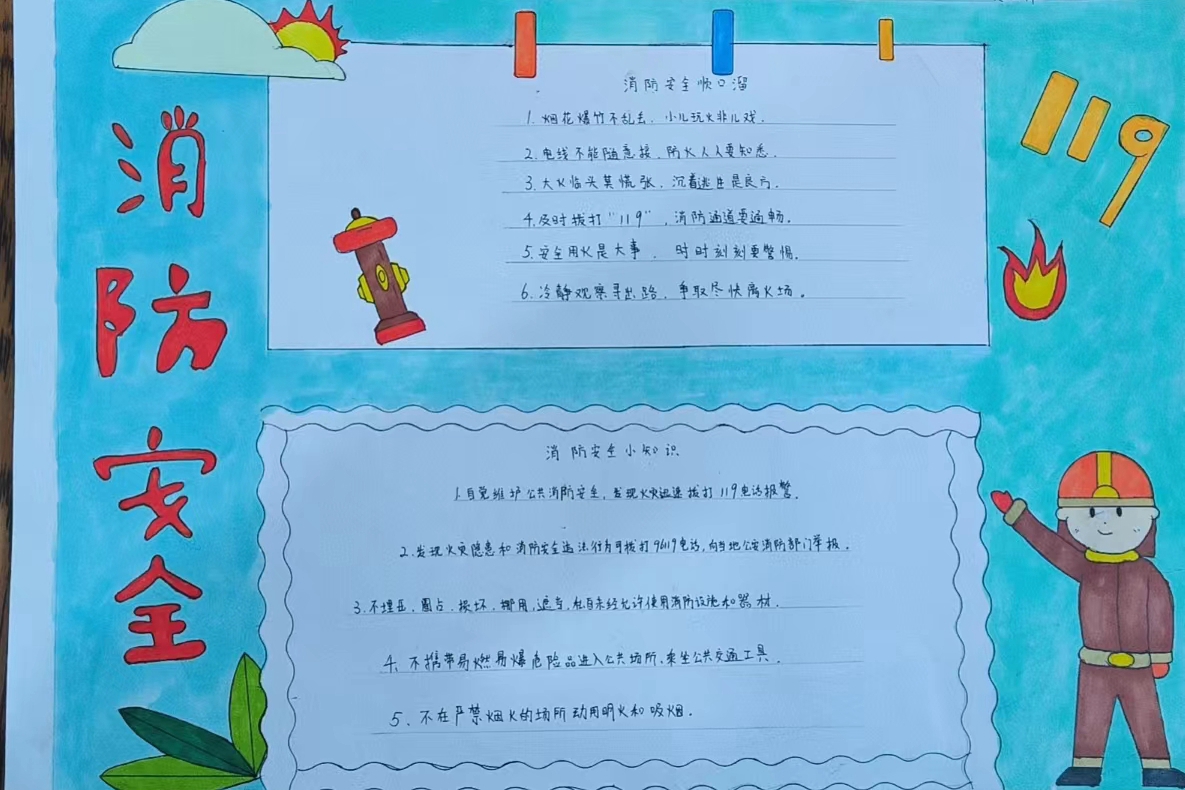 消防安全
119
消防安全顺口溜
1. 烟花爆竹不乱丢，小儿玩火非儿戏。
2. 电线不能随意接，防火人人要知悉。
3. 大火临头莫慌张，沉着逃生是良方。
4. 及时拨打“119”，消防通道要通畅。
5. 安全用火是大事，时时刻刻要警惕。
6. 冷静观察寻出路，争取尽快离火场。
消防安全小知识
1. 自觉维护公共消防安全，发现火灾迅速拨打119电话报警。
2. 发现火灾隐患和消防安全违法行为可拨打96119电话，向当地公安消防部门举报。
3. 不埋压、圈占、损坏、挪用、遮挡、私自未经允许使用消防设施和器材.
4、不携带易燃易爆危险品进入公共场所、乘坐公共交通工具.
5、不在严禁烟火的场所动用明火和吸烟.